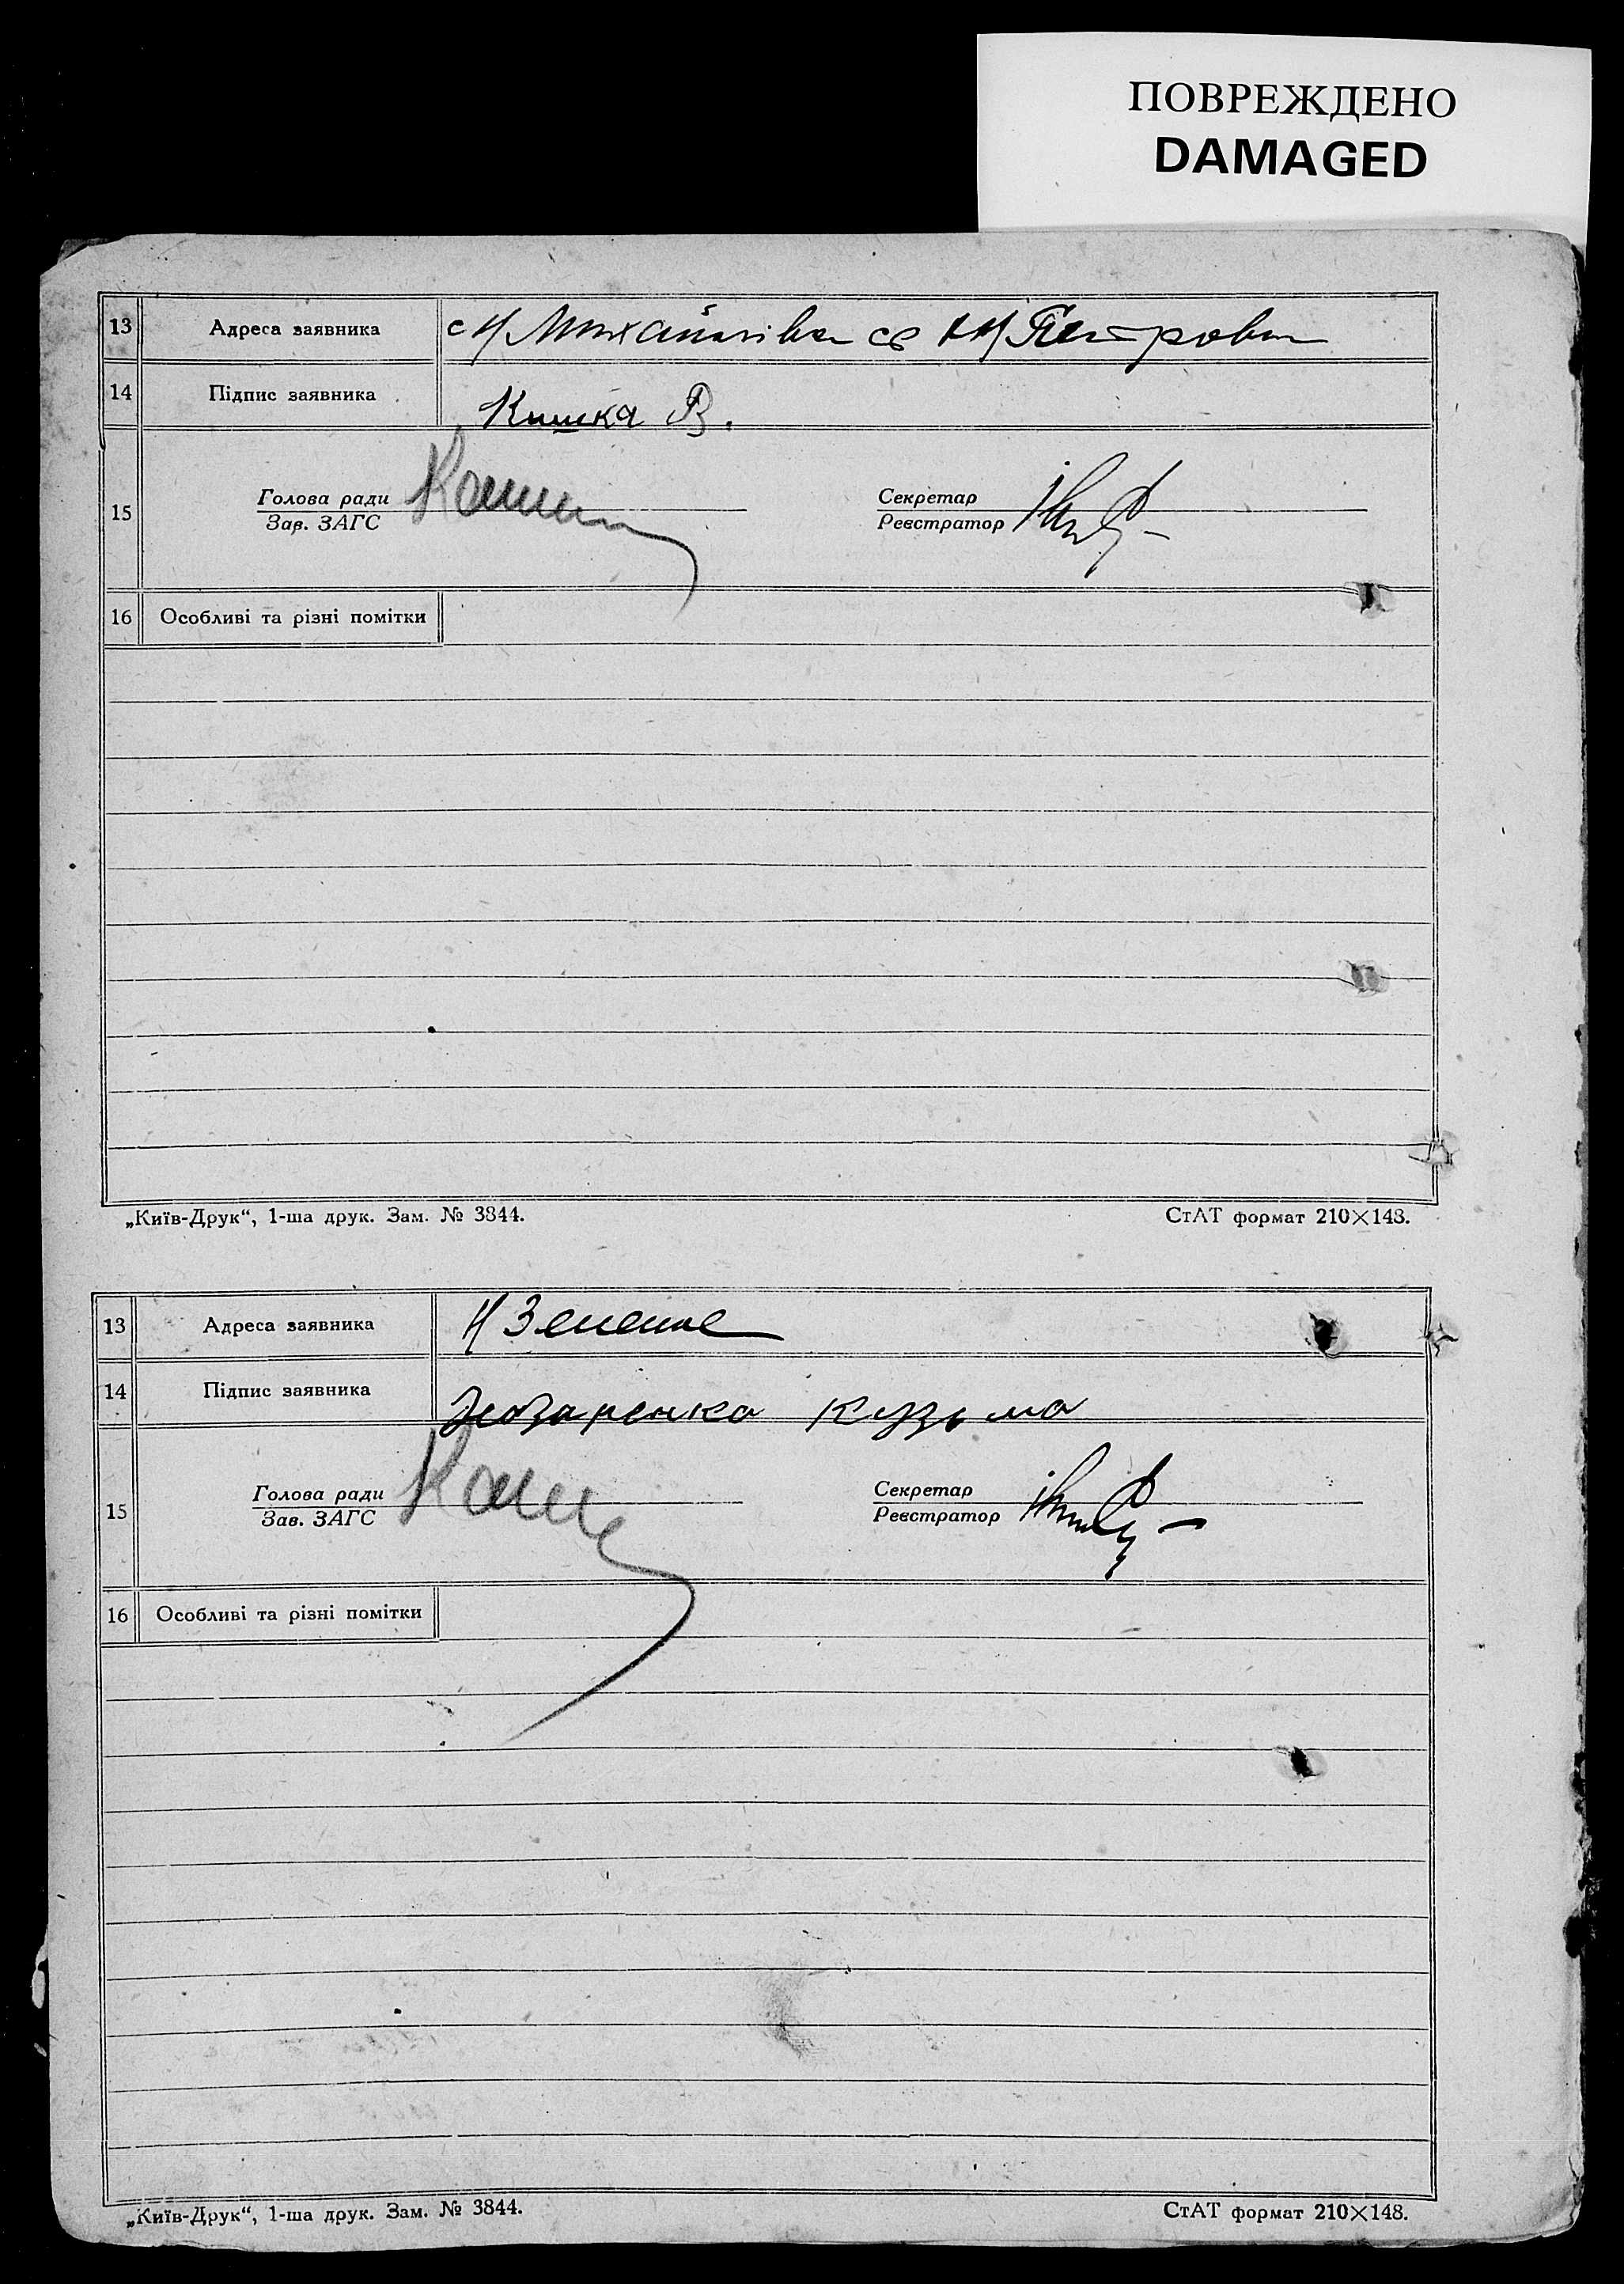 ПОВРЕЖДЕНО
DAMAGED
13 Адреса заявника с/Михайлівка
14 Підпис заявника Кишка В.
Голова ради Секретар
15
Зав. ЗАГС Реєстратор
16 Особливі та різні помітки
„Київ-Друк“, 1-ша друк. Зам. № 3844. СтАТ формат 210×148.
13 Адреса заявника
14 Підпис заявника Кузьма
Голова ради Секретар
15
Зав. ЗАГС Реєстратор
16 Особливі та різні помітки
„Київ-Друк“, 1-ша друк. Зам. № 3844. СтАТ формат 210×148.